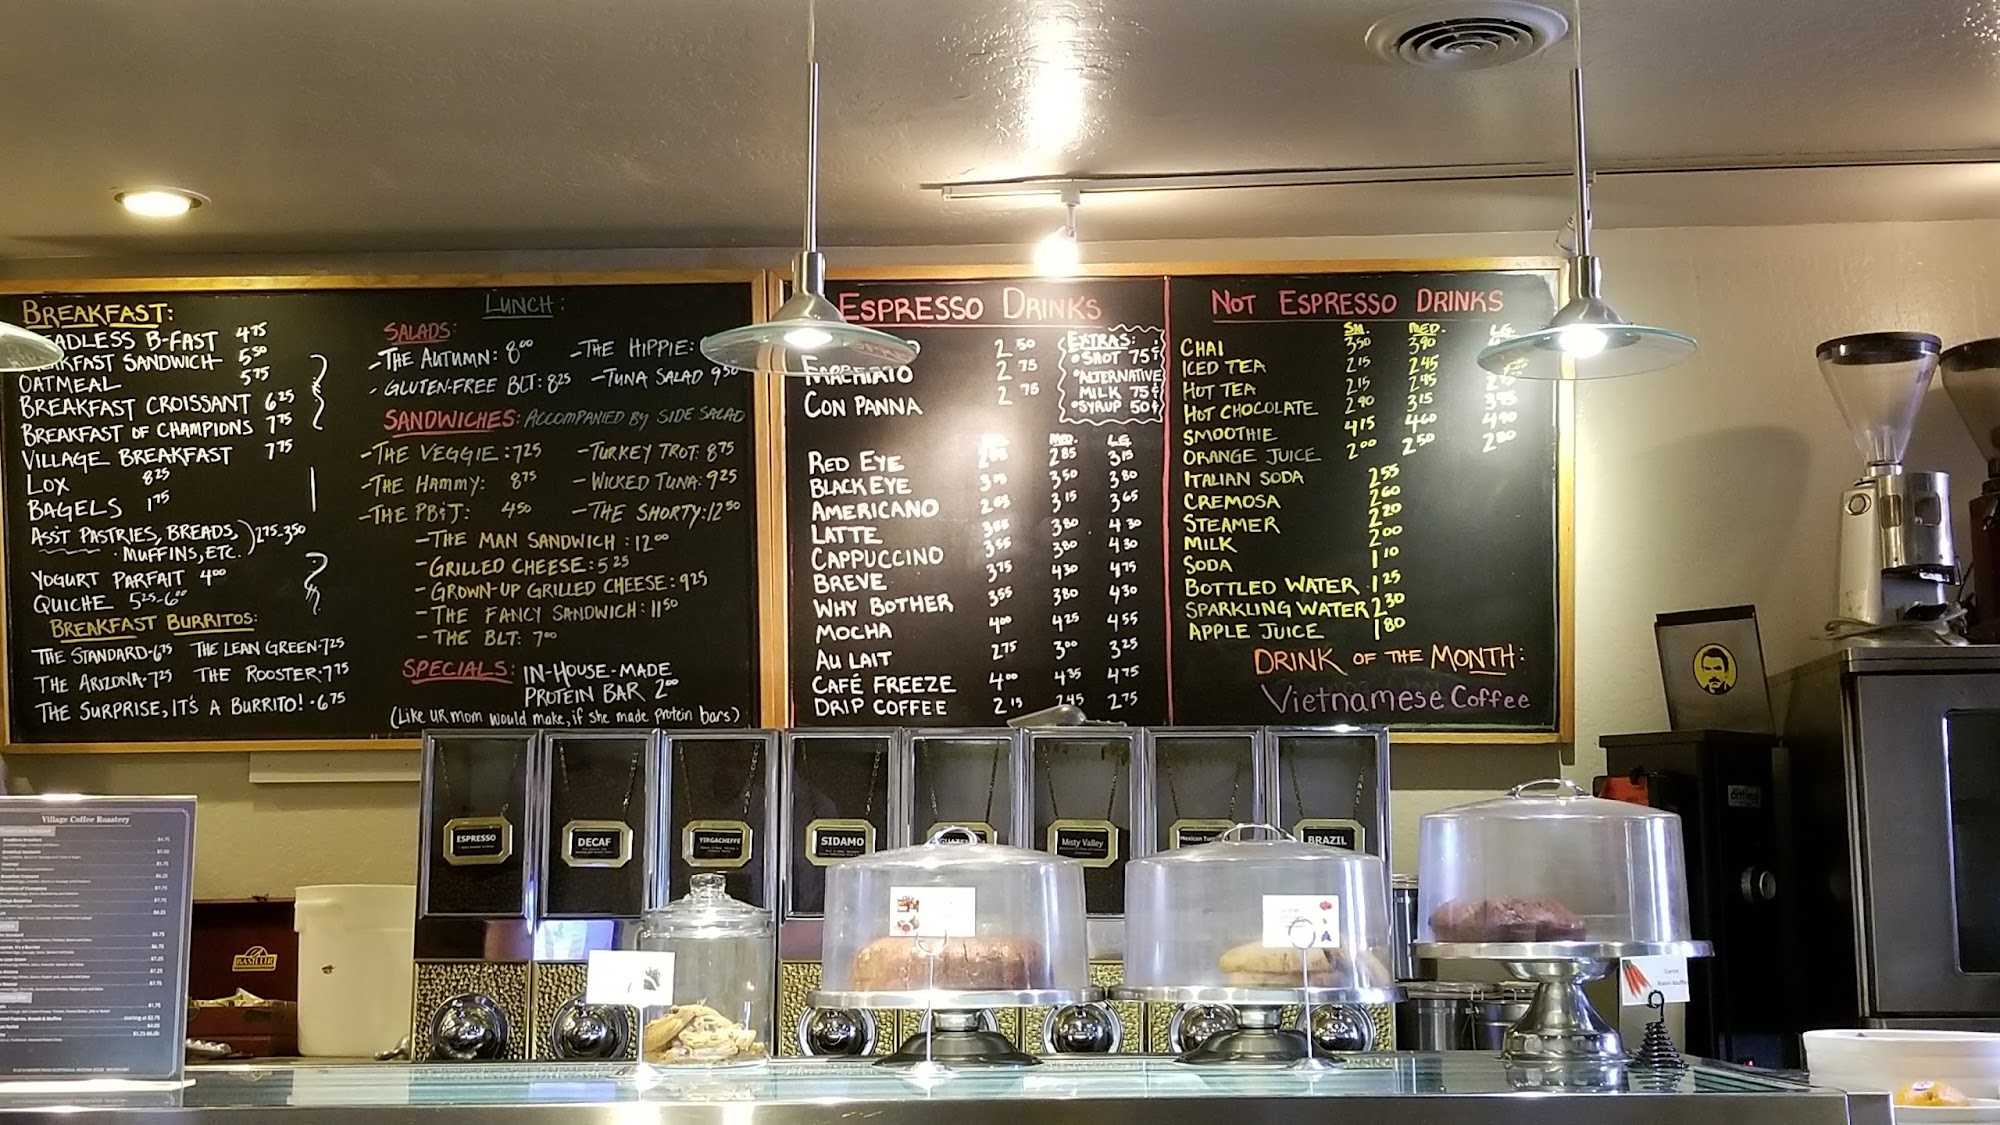 BREAKFAST:
ADLESS B-FAST 4 75
KFAST SANDWICH 5 50
OATMEAL 5 75
BREAKFAST CROISSANT 6 25
BREAKFAST OF CHAMPIONS 7 75
VILLAGE BREAKFAST 7 75
LOX 8 25
BAGELS 1 75
ASS'T PASTRIES, BREADS, MUFFINS, ETC. 2 75-3 50
YOGURT PARFAIT 4 00
QUICHE 5 25-6 00
BREAKFAST BURRITOS:
THE STANDARD-6 75 THE LEAN GREEN-7 25
THE ARIZONA-7 25 THE ROOSTER-7 75
THE SURPRISE, IT'S A BURRITO!-6 75
LUNCH:
SALADS:
-THE AUTUMN: 8 00 -THE HIPPIE:
-GLUTEN-FREE BLT: 8 25 -TUNA SALAD 9 50
SANDWICHES: ACCOMPANIED BY SIDE SALAD
-THE VEGGIE: 7 25 -TURKEY TROT: 8 75
-THE HAMMY: 8 75 -WICKED TUNA: 9 25
-THE PB&J: 4 50 -THE SHORTY: 12 50
-THE MAN SANDWICH: 12 00
-GRILLED CHEESE: 5 25
-GROWN-UP GRILLED CHEESE: 9 25
-THE FANCY SANDWICH: 11 50
-THE BLT: 7 00
SPECIALS: IN-HOUSE-MADE
PROTEIN BAR 2 00
(Like UR mom would make, if she made protein bars)
ESPRESSO DRINKS
2 50
MACHIATO 2 75
CON PANNA 2 75
EXTRAS:
•SHOT 75¢
•ALTERNATIVE
MILK 75¢
•SYRUP 50¢
MED. LG.
RED EYE 2 85 3 15
BLACK EYE 3 50 3 80
AMERICANO 3 15 3 65
LATTE 3 55 3 80 4 30
CAPPUCCINO 3 55 3 80 4 30
BREVE 3 75 4 30 4 75
WHY BOTHER 3 55 3 80 4 30
MOCHA 4 00 4 25 4 55
AU LAIT 2 75 3 00 3 25
CAFÉ FREEZE 4 00 4 35 4 75
DRIP COFFEE 2 15 2 45 2 75
NOT ESPRESSO DRINKS
SM. MED. LG.
CHAI 3 50 3 90
ICED TEA 2 15 2 45
HOT TEA 2 15 2 45
HOT CHOCOLATE 2 90 3 15 3 95
SMOOTHIE 4 15 4 60 4 90
ORANGE JUICE 2 00 2 50 2 80
ITALIAN SODA 2 55
CREMOSA 2 60
STEAMER 2 20
MILK 2 00
SODA 1 10
BOTTLED WATER 1 25
SPARKLING WATER 2 30
APPLE JUICE 1 80
DRINK OF THE MONTH:
Vietnamese Coffee
ESPRESSO
DECAF
YIRGACHEFFE
SIDAMO
Misty Valley
BRAZIL
Village Coffee Roastery
BASILUR
Carrot
Raisin Muffin